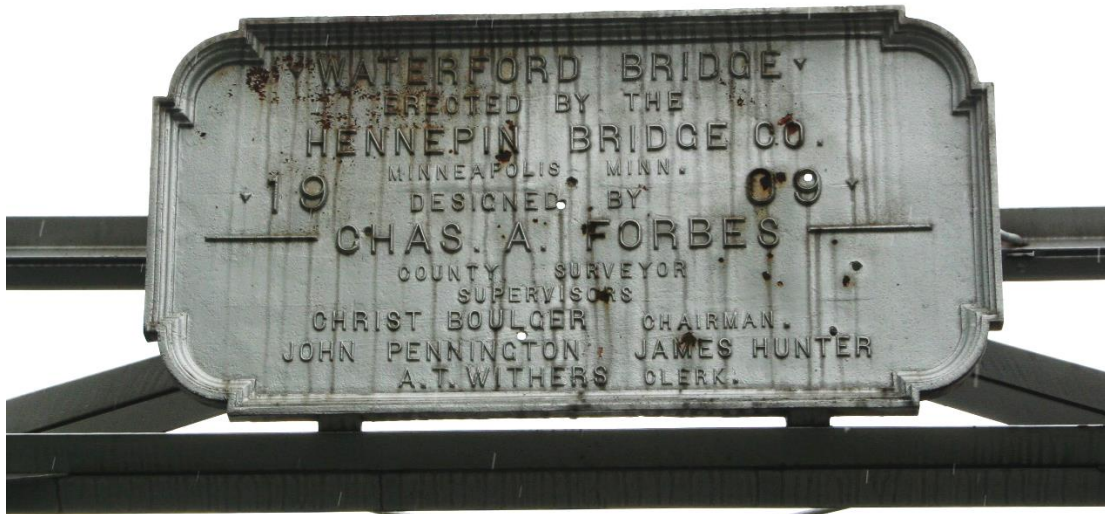 WATERFORD BRIDGE
ERECTED BY THE
HENNEPIN BRIDGE CO.
MINNEAPOLIS MINN.
19 DESIGNED BY 09
CHAS. A. FORBES
COUNTY SURVEYOR
SUPERVISORS
CHRIST BOULGER CHAIRMAN.
JOHN PENNINGTON JAMES HUNTER
A.T. WITHERS CLERK.